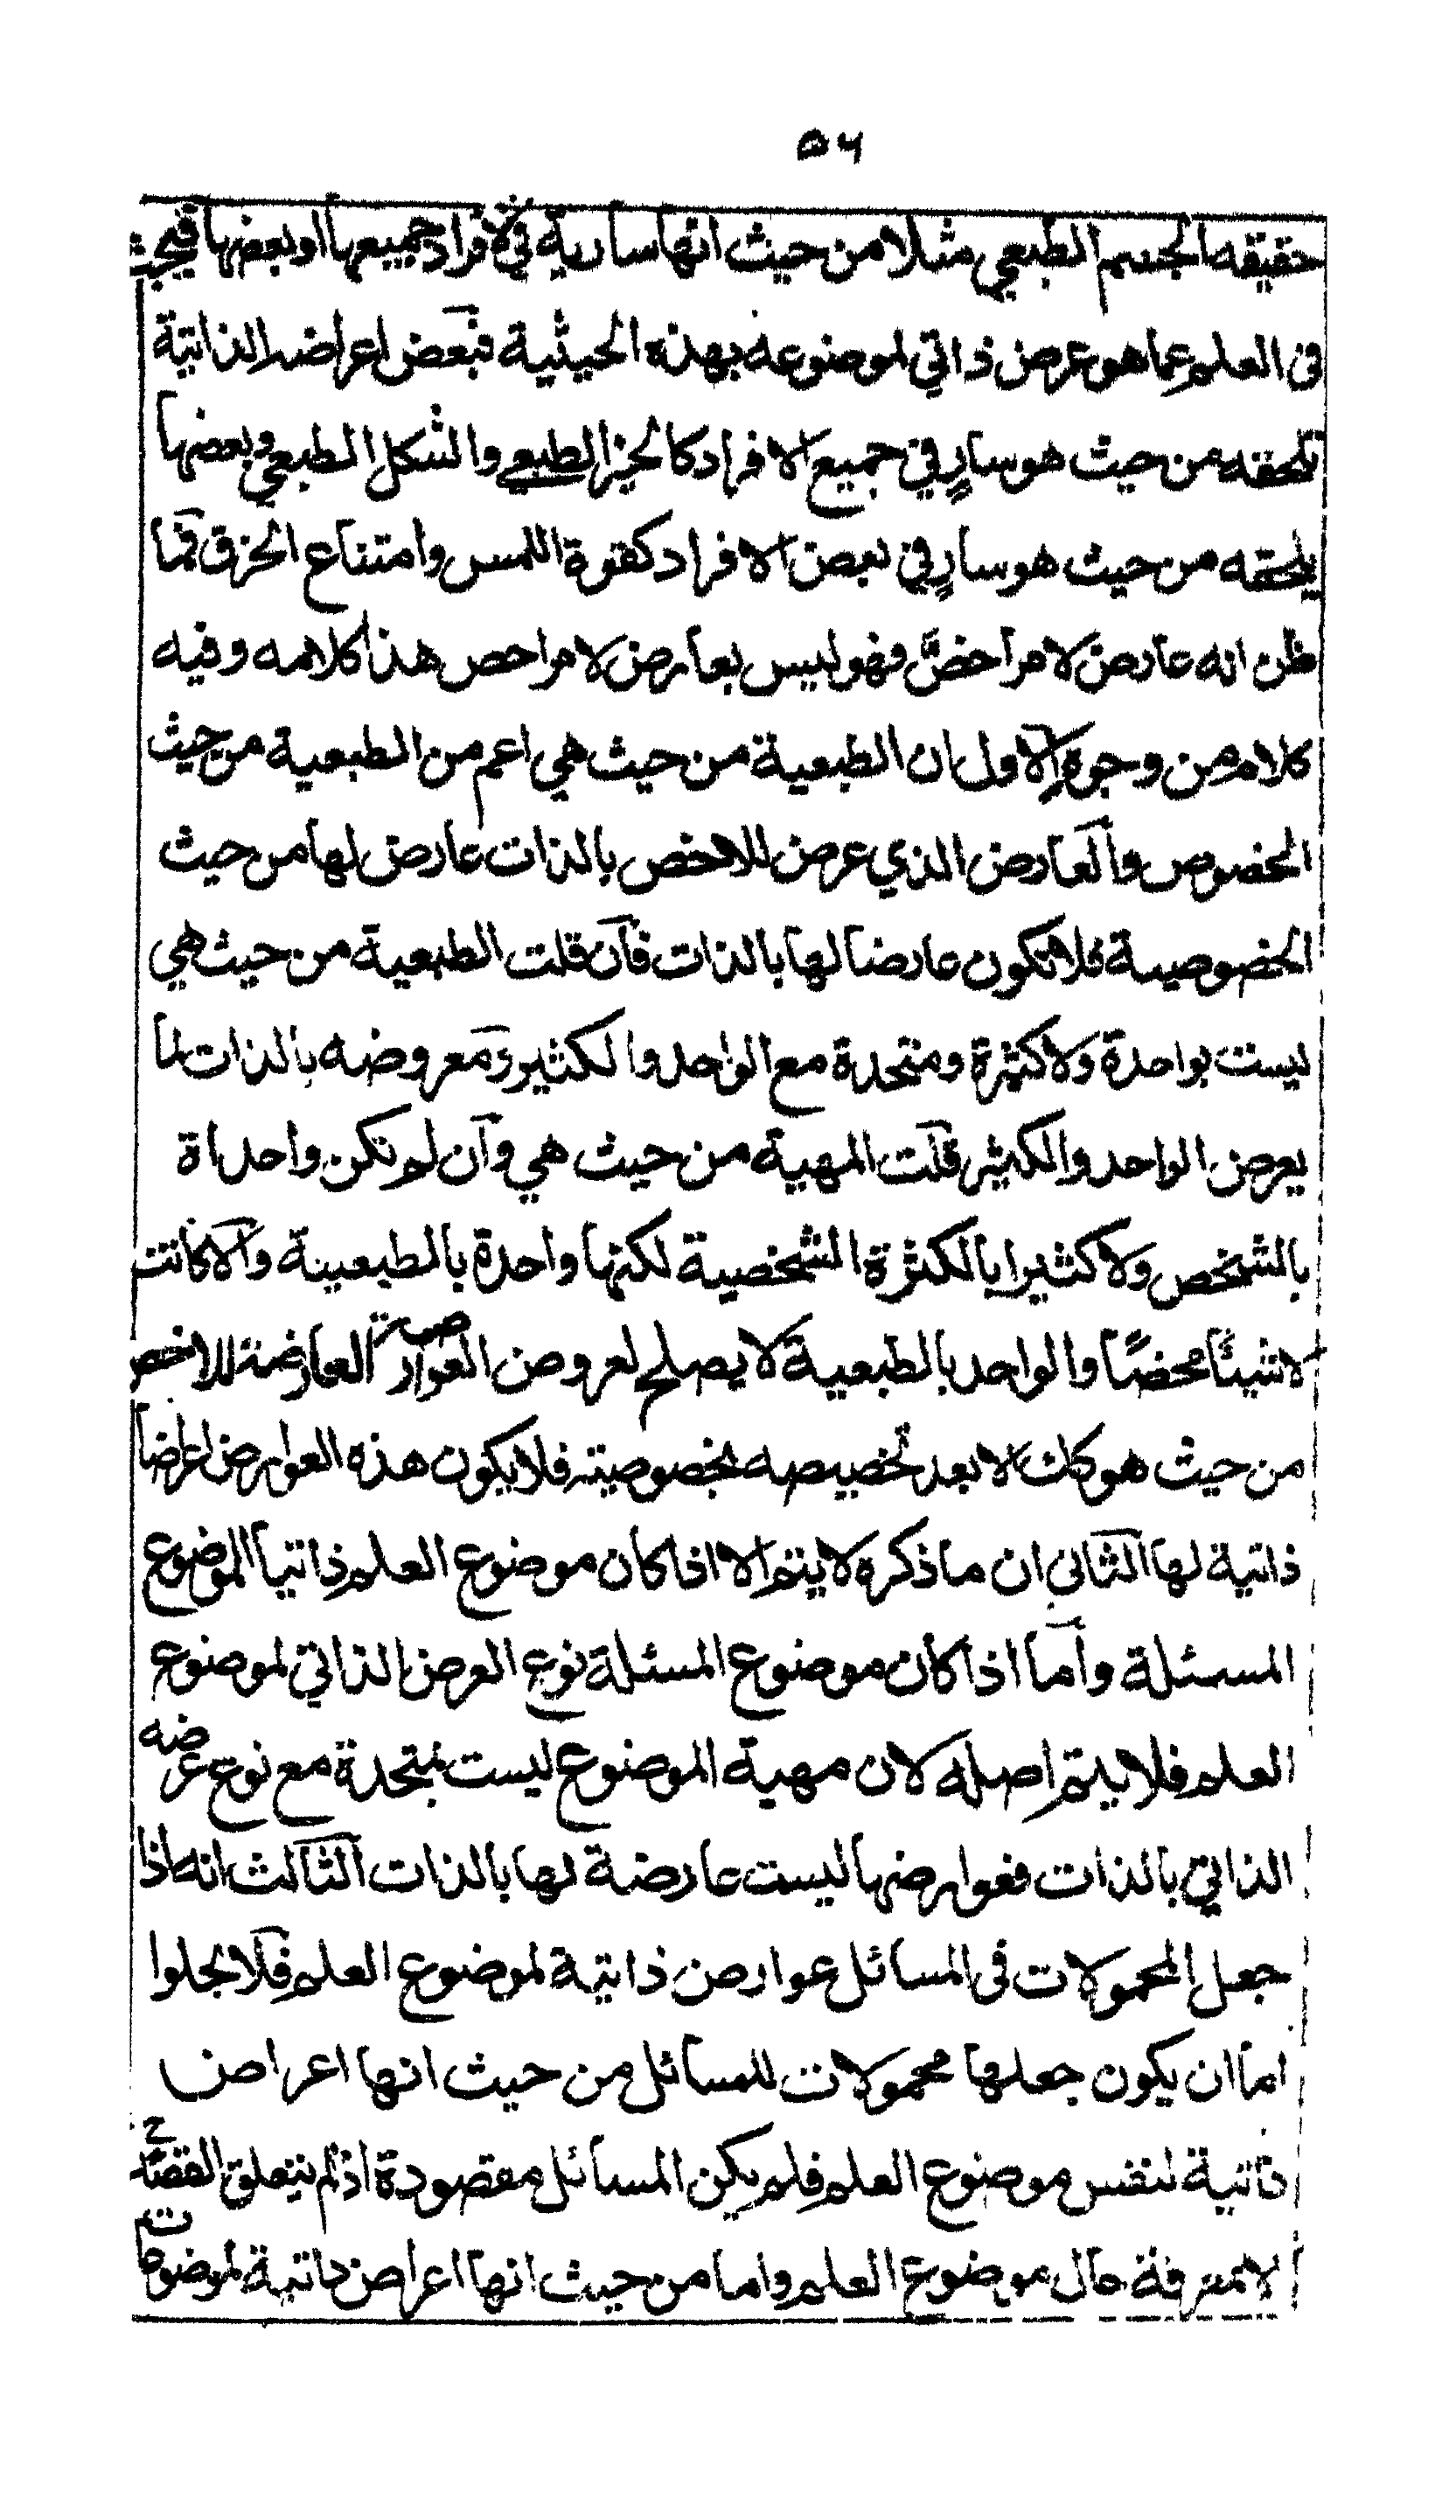 ٥٦
حقيقه الجسم الطبعي مثلا من حيث انها سارية في الافراد جميعها او بعضها فيبحث
فى العلم عما هو عرض ذاتي لموضوعه بهذه الحيثية فبعض اعراضه الذاتية
تلحقه من حيث هو سارٍ في جميع الافراد كالحيز الطبعي والشكل الطبعي وبعضها
يلحقه من حيث هو سارٍ في بعض الافراد كقوة اللمس وامتناع الخرق فما
ظن انه عارض لامر اخصَّ فهو ليس بعارض لامر احص هذا كلامه وفيه
كلام من وجوهٍ الاول ان الطبعية من حيث هي اعم من الطبعية من حيث
الخصوص والعارض الذي عرض للاخص بالذات عارض لها من حيث
الخصوصية فلا تكون عارضا لها بالذات فان قلت الطبعية من حيث هي
ليست بواحدة ولا كثيرة ومتحدة مع الواحد والكثير ومعروضه بالذات لما
يعرض الواحد والكثير قلت المهية من حيث هي وان لم تكن واحداة
بالشخص ولا كثيرا بالكثرة الشخصية لكنها واحدة بالطبعينة والا كانت
لا شيئًا محضًا والواحد بالطبعية لا يصلح لعروض العوارض العارضة للاخص
من حيث هو كك الا بعد تخصيصه بخصوصيته فلا يكون هذه العوارض اعراضا
ذاتية لها الثاني ان ما ذكره لا يتم الا اذا كان موضوع العلم ذاتيا لموضوع
المسئلة واما اذا كان موضوع المسئلة نوع العرض الذاتي لموضوع
العلم فلا يتم اصله لان مهية الموضوع ليست بمتحدة مع نوع عرضه
الذاتي بالذات فعوارضها ليست عارضة لها بالذات الثالث انه اذا
جعل المحمولات فى المسائل عوارض ذاتية لموضوع العلم فلا يخلوا
اما ان يكون جعلها محمولات للمسائل من حيث انها اعراض
ذاتية لنفس موضوع العلم فلم يكن المسائل مقصودة اذ لم يتعلق القصد ح
الا بمعرفة حال موضوع العلم واما من حيث انها اعراض ذاتية لموضوعاتها